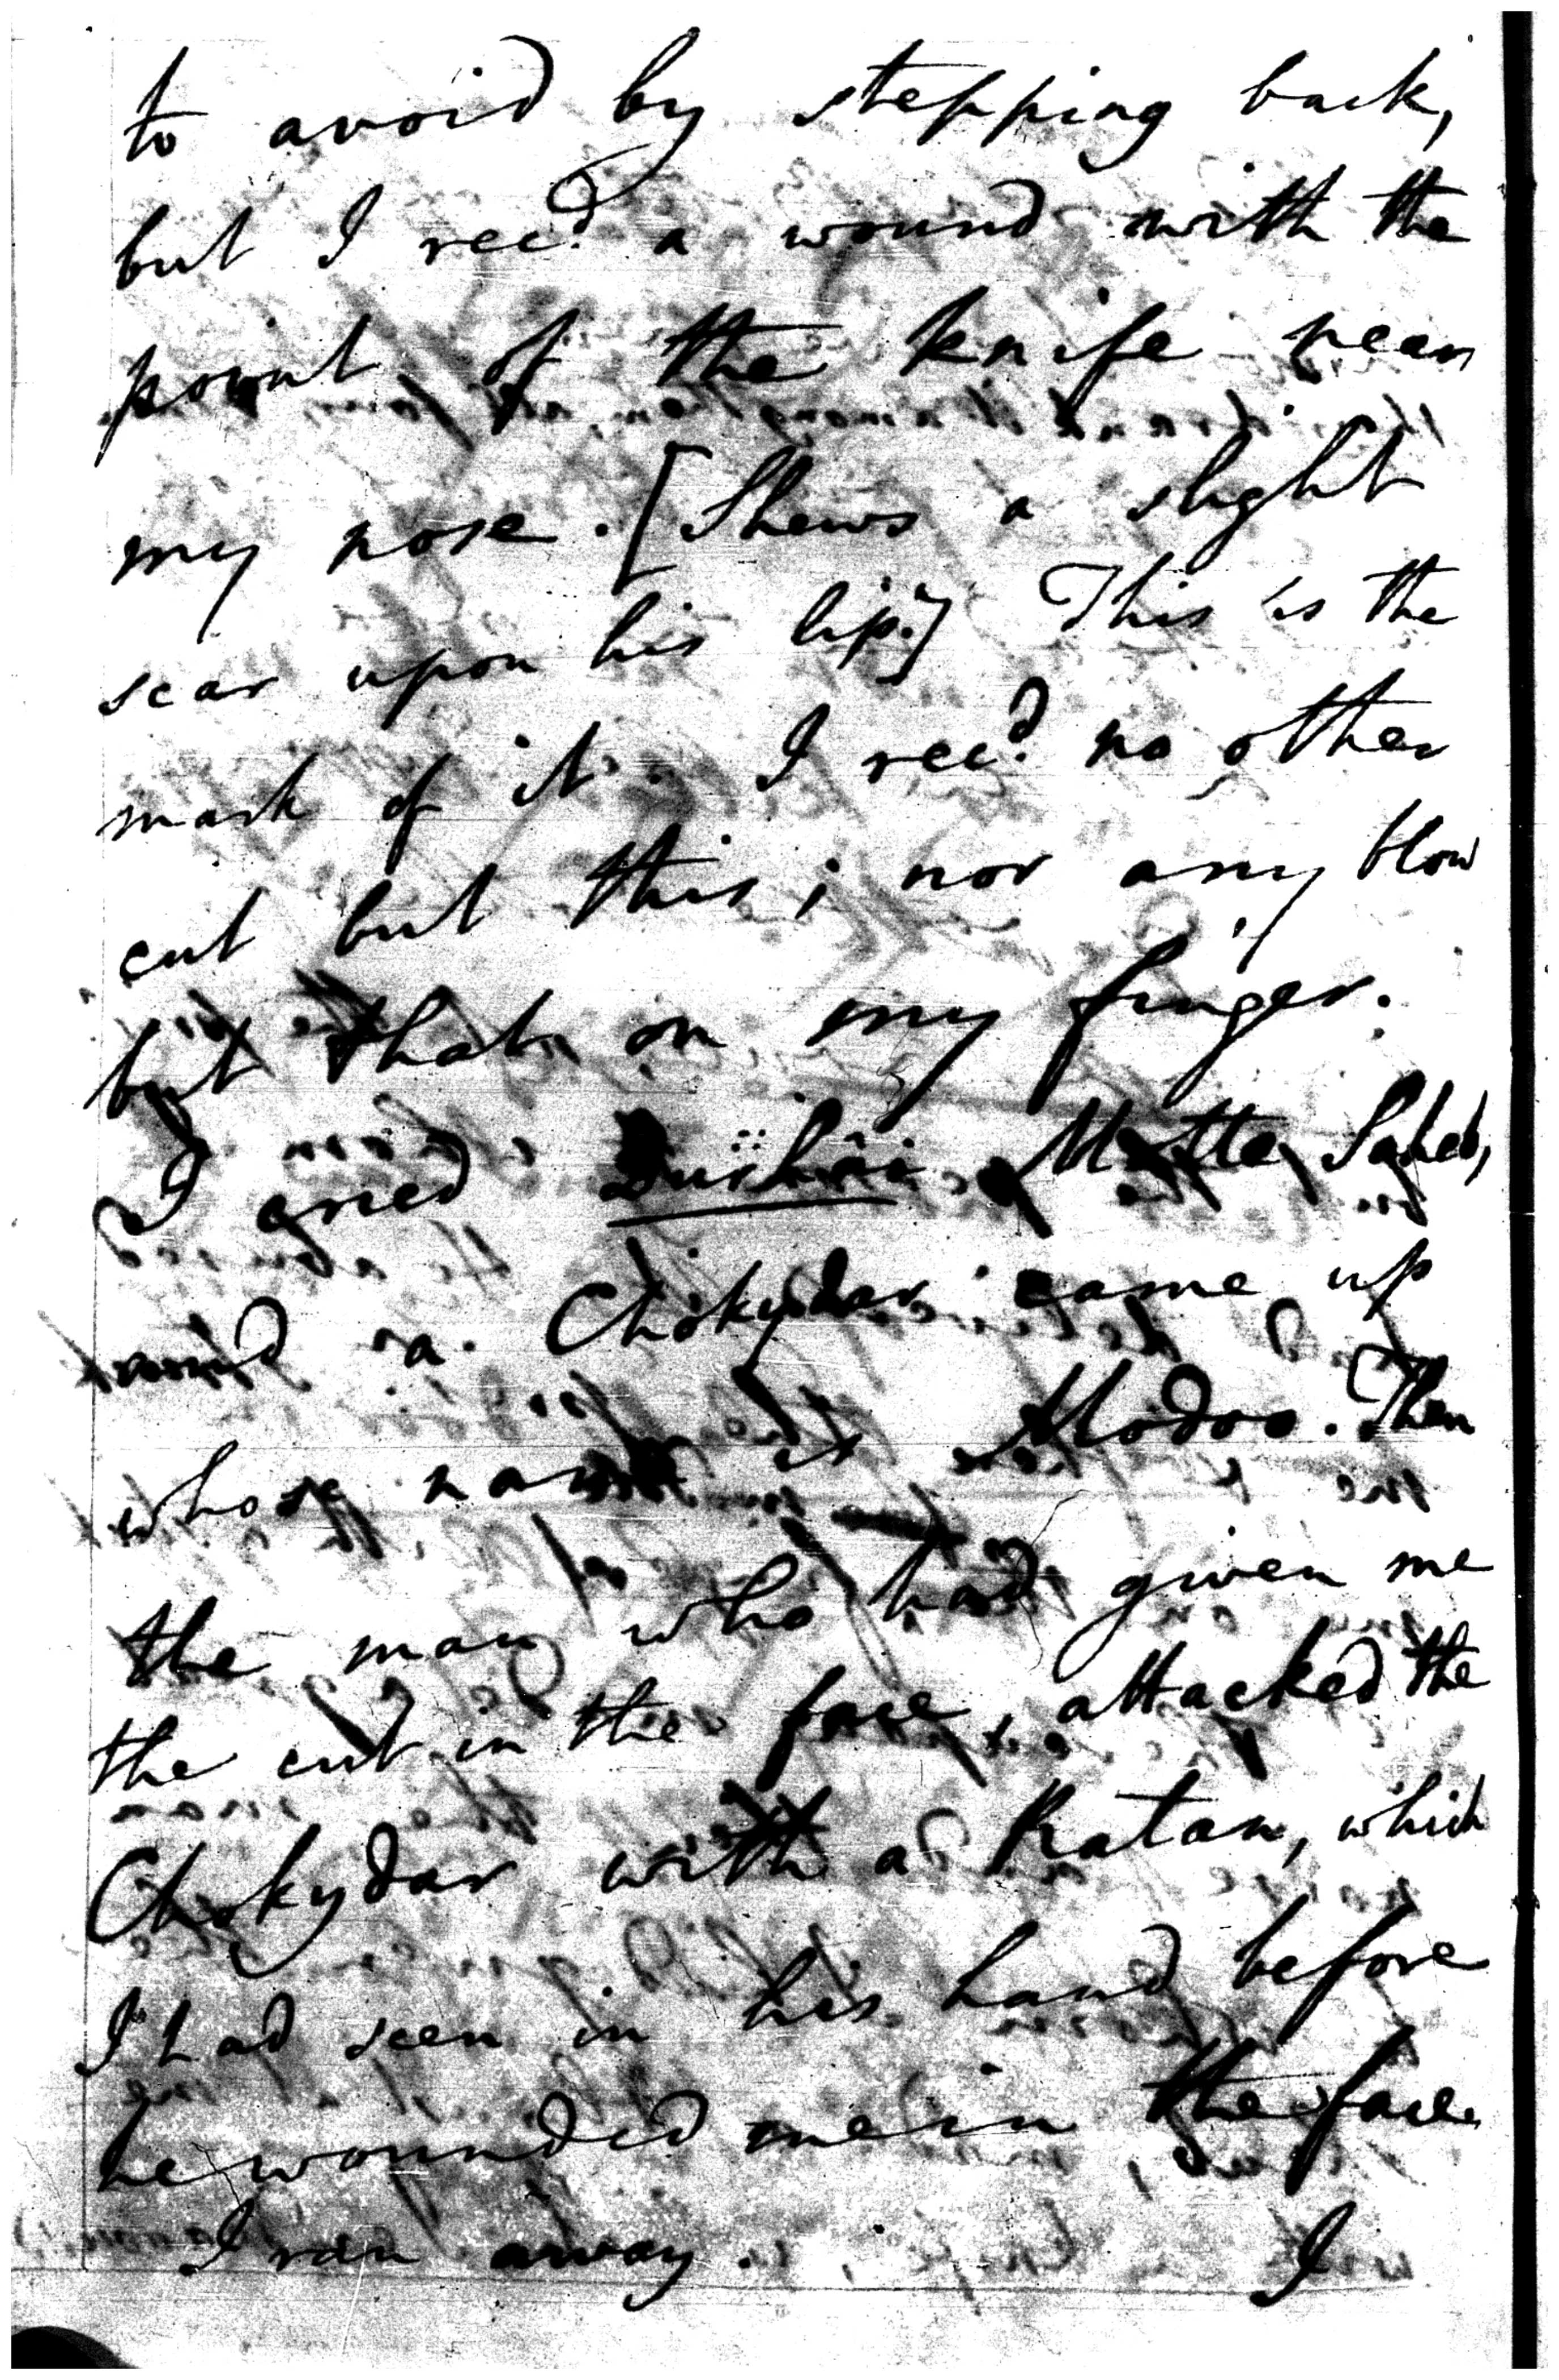 to avoid by stepping back,
but I recd. a wound with the
point of the knife near
my nose. [Shews a slight
scar upon his lip.] This is the
mark of it. I recd. no other
cut but this; nor any blow
but that on my finger.
I cried Motte Saheb,
and a Chokydar came up
whose name is Modoo. Then
the man who had given me
the cut in the face, attacked the
Chokydar with a Ratan, which
I had seen in his hand before
he wounded me in the face
I ran away. I